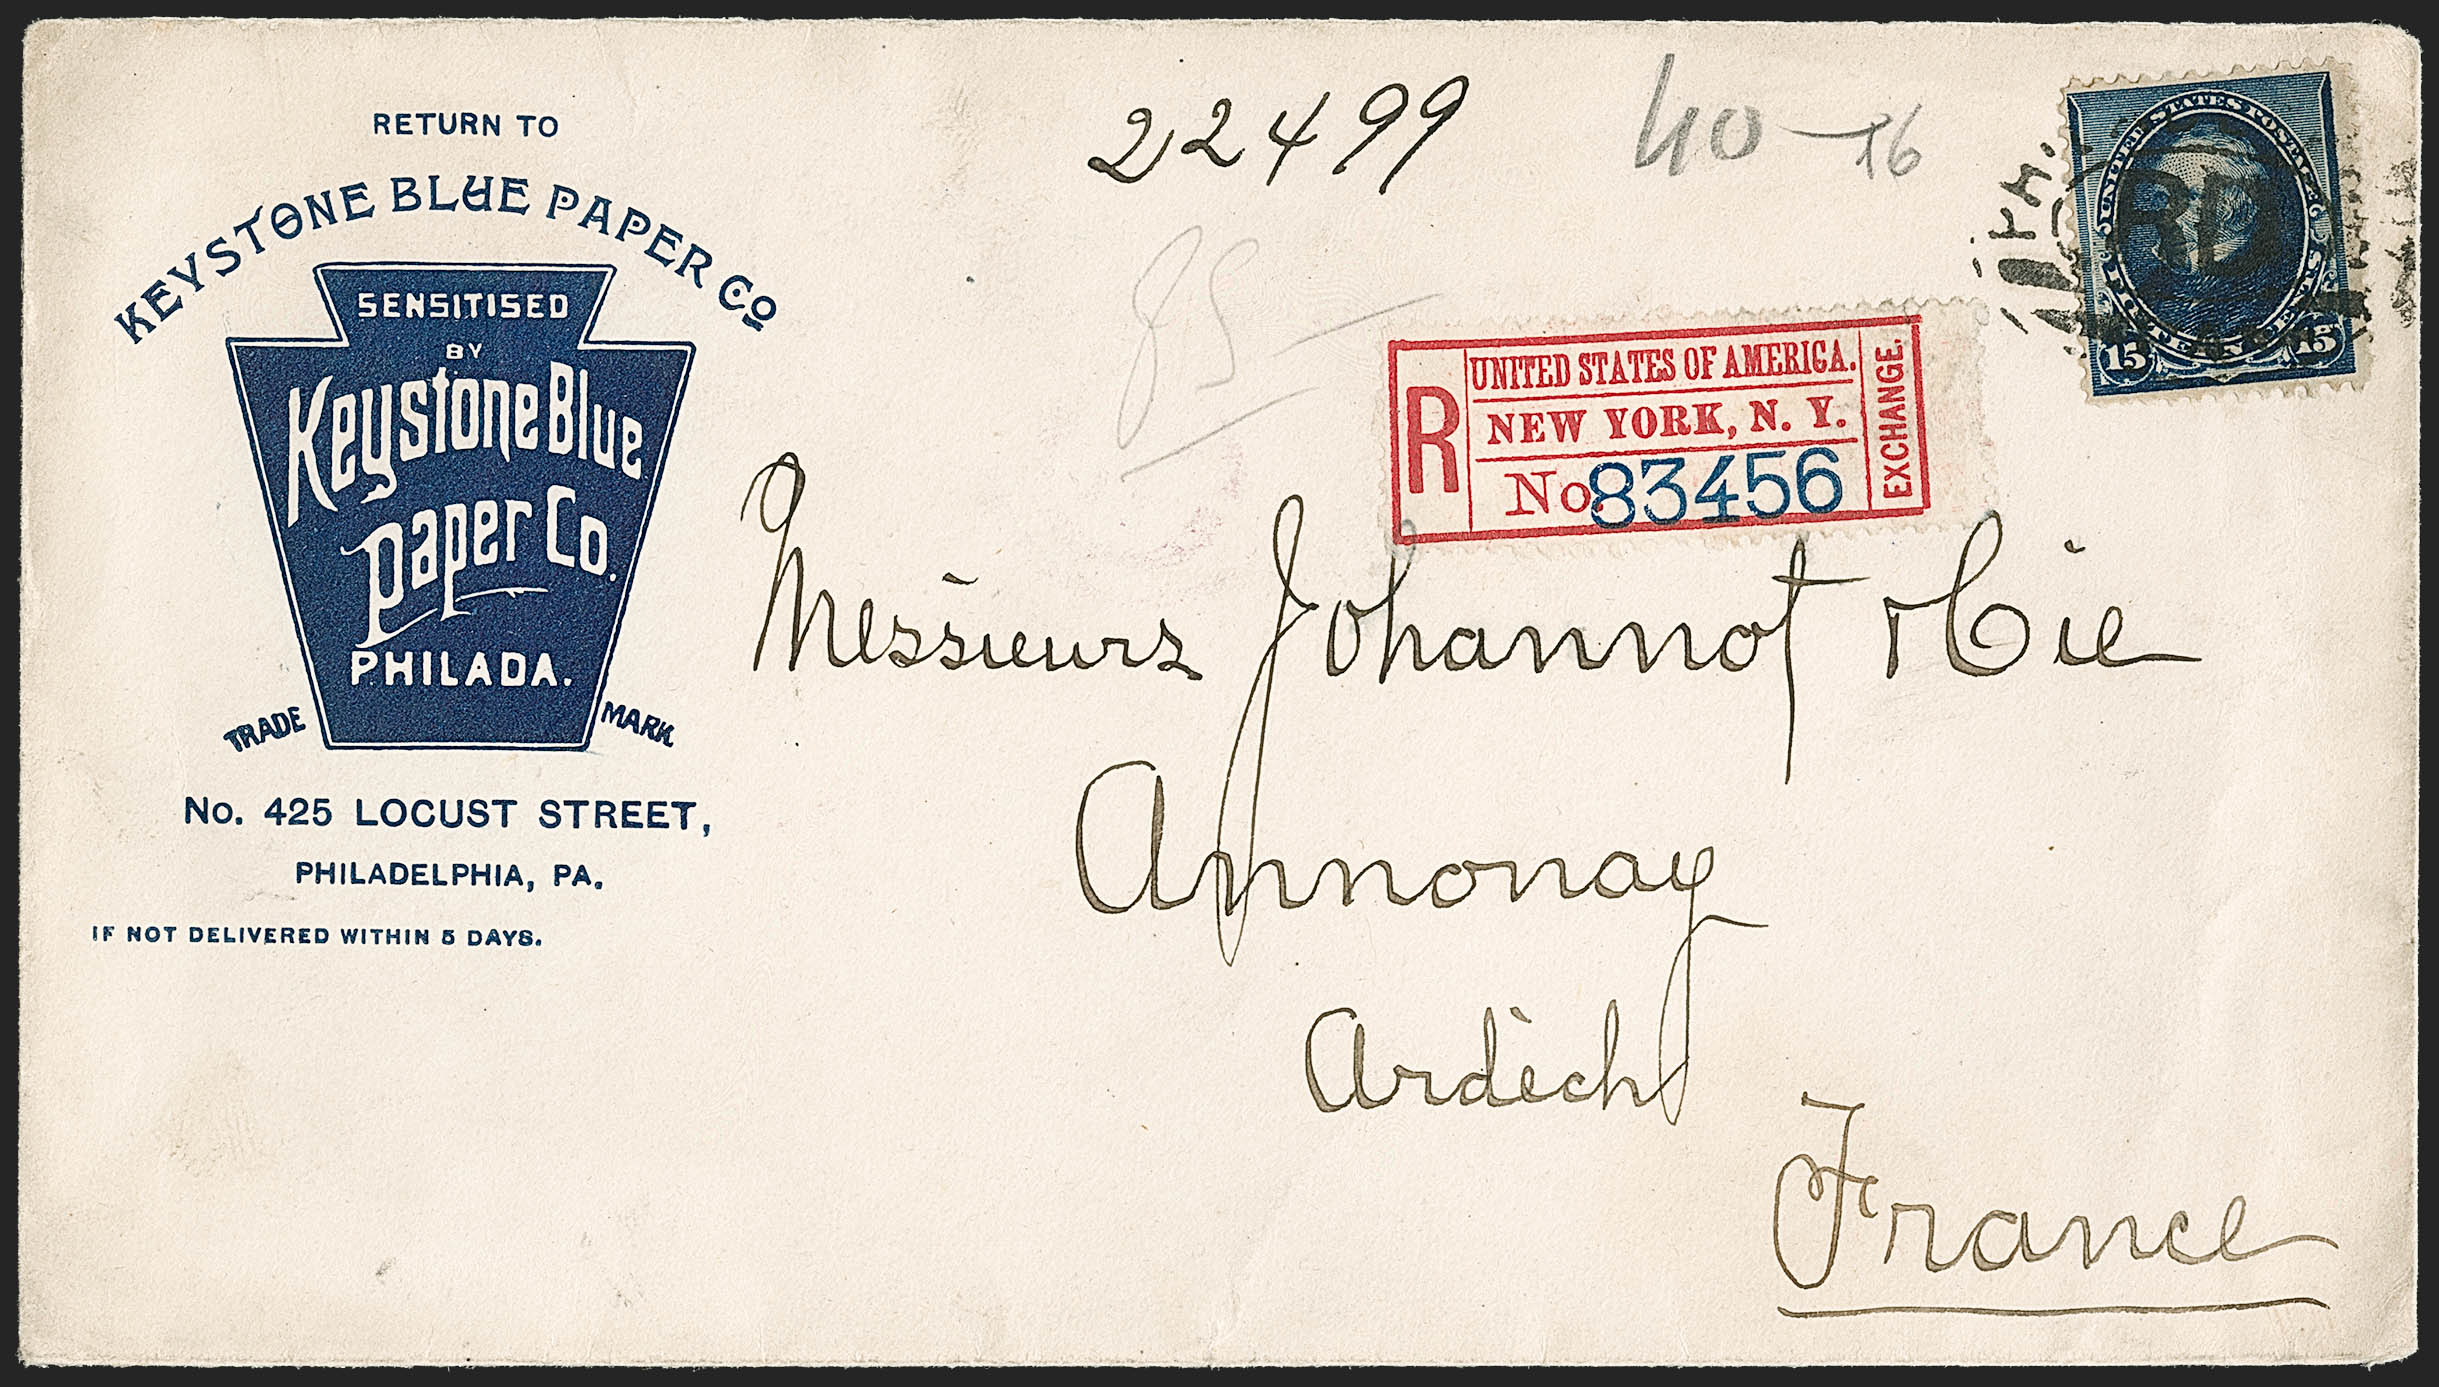 RETURN TO
KEYSTONE BLUE PAPER Co
SENSITISED
BY
Keystone Blue
Paper Co.
PHILADA.
TRADE MARK.
No. 425 LOCUST STREET,
PHILADELPHIA, PA.
IF NOT DELIVERED WITHIN 5 DAYS.
22499
40-16
85-
UNITED STATES POSTAGE
15 15
R
UNITED STATES OF AMERICA.
NEW YORK, N. Y.
No. 83456
EXCHANGE.
Messieurs Johannot & Cie
Annonay
Ardèch
France